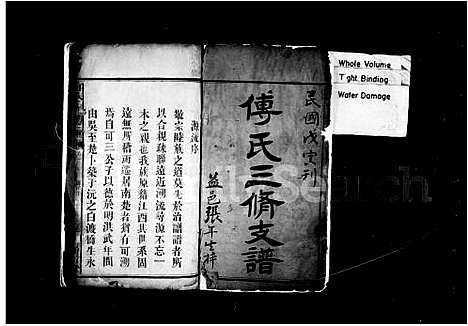 Whole Volume
Tight Binding
Water Damage
民國戊寅刊
傅氏三修支譜
益邑張平生梓
源流序
敬宗睦族之道莫生於治譜譜者所
以合親疎聯遠近溯流尋源不忘一
本之親也我族原籍江西其世系固
遠無所稽而遷居南楚者猶有可溯
焉自可三公子以德於明洪武年間
由吳至是卜築于沅之白渡橋生永
Search